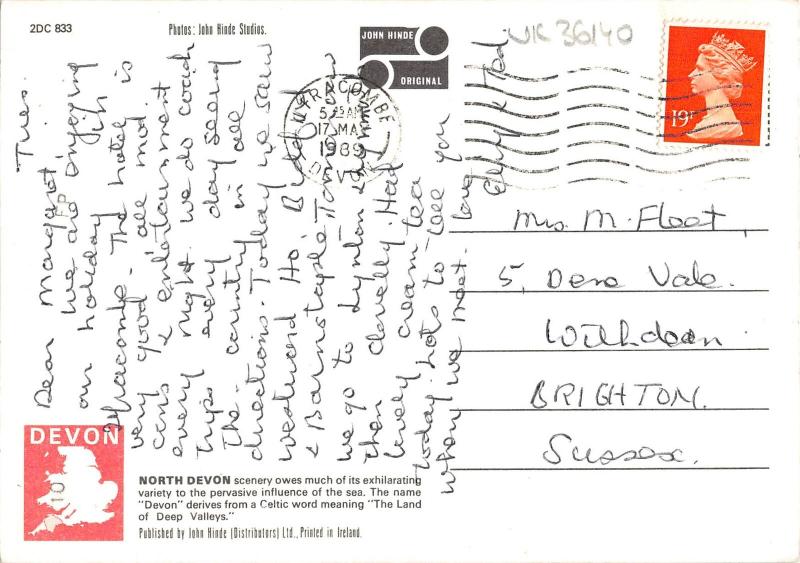 2DC 833
Photos: John Hinde Studios.
JOHN HINDE
ORIGINAL
UK 36140
ILFRACOMBE
5.15 AM
17 MA
1989
DEVON
19
Tues.
Dear Margaret,
We are enjoying
our holiday in
Ilfracombe. The hotel is
very good all mod.
cons & entertainment
every night. We do coach
trips every day seeing
the country in all
directions. Today we saw
Westward Ho, Bideford
& Barnstaple, Tomorrow
we go to Lynton & Lynmouth
then Clovelly. Had
lovely cream tea
today. Lots to tell you
when we meet. Love
Mrs M. Fleet,
5, Dene Vale.
Withdean
BRIGHTON.
Sussex.
DEVON
NORTH DEVON scenery owes much of its exhilarating
variety to the pervasive influence of the sea. The name
"Devon" derives from a Celtic word meaning "The Land
of Deep Valleys."
Published by John Hinde (Distributors) Ltd., Printed in Ireland.